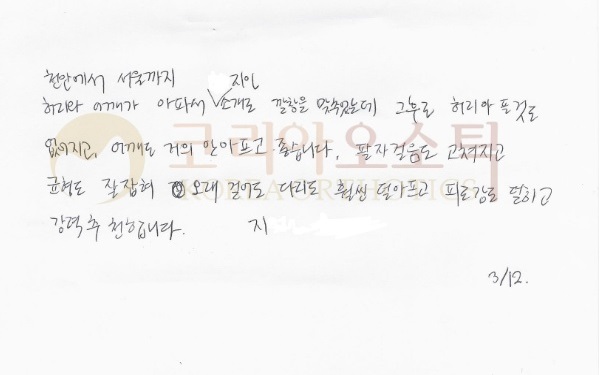 천안에서 서울까지 지인
허리와 어깨가 아파서 소개로 깔창을 맞추었는데 그후로 허리아픈것도
없어지고, 어깨도 거의 안아프고 좋습니다. 팔자걸음도 고쳐지고
균형도 잘잡혀 오래 걸어도 다리도 훨씬 덜아프고 피로감도 덜하고
강력추천합니다. 지
3/12.
코리아오스틱
KOREA ORTHOTICS